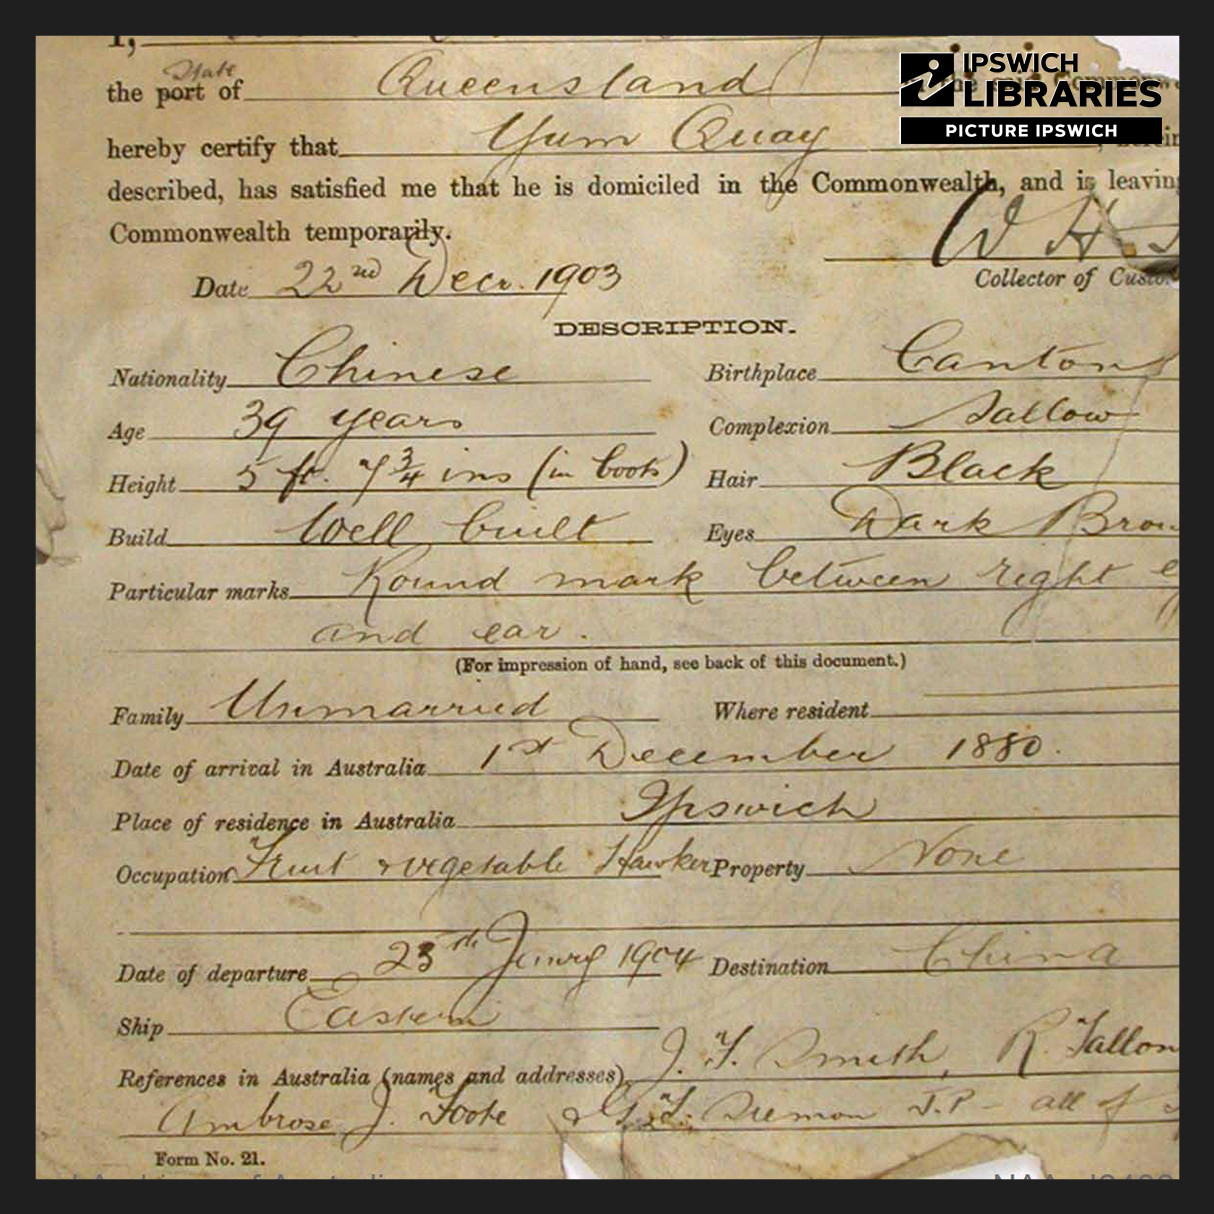 IPSWICH
LIBRARIES
PICTURE IPSWICH
I,
State
the port of Queensland
hereby certify that Yum Quay
described, has satisfied me that he is domiciled in the Commonwealth, and is leaving
Commonwealth temporarily.
W H
Date 22nd Decr. 1903
Collector of
DESCRIPTION.
Nationality Chinese Birthplace Canton
Age 39 years Complexion Sallow
Height 5 ft. 7 3/4 ins (in boots) Hair Black
Build Well built Eyes Dark
Particular marks Round mark between right
and ear.
(For impression of hand, see back of this document.)
Family Unmarried Where resident
Date of arrival in Australia 1st December 1880.
Place of residence in Australia Ipswich
Occupation Fruit & vegetable Hawker Property None
Date of departure 23th Janry 1904 Destination China
Ship Eastern
References in Australia (names and addresses) J. F. Smith, R. Tallon
Ambrose J. Foote & J.P - all of
Form No. 21.